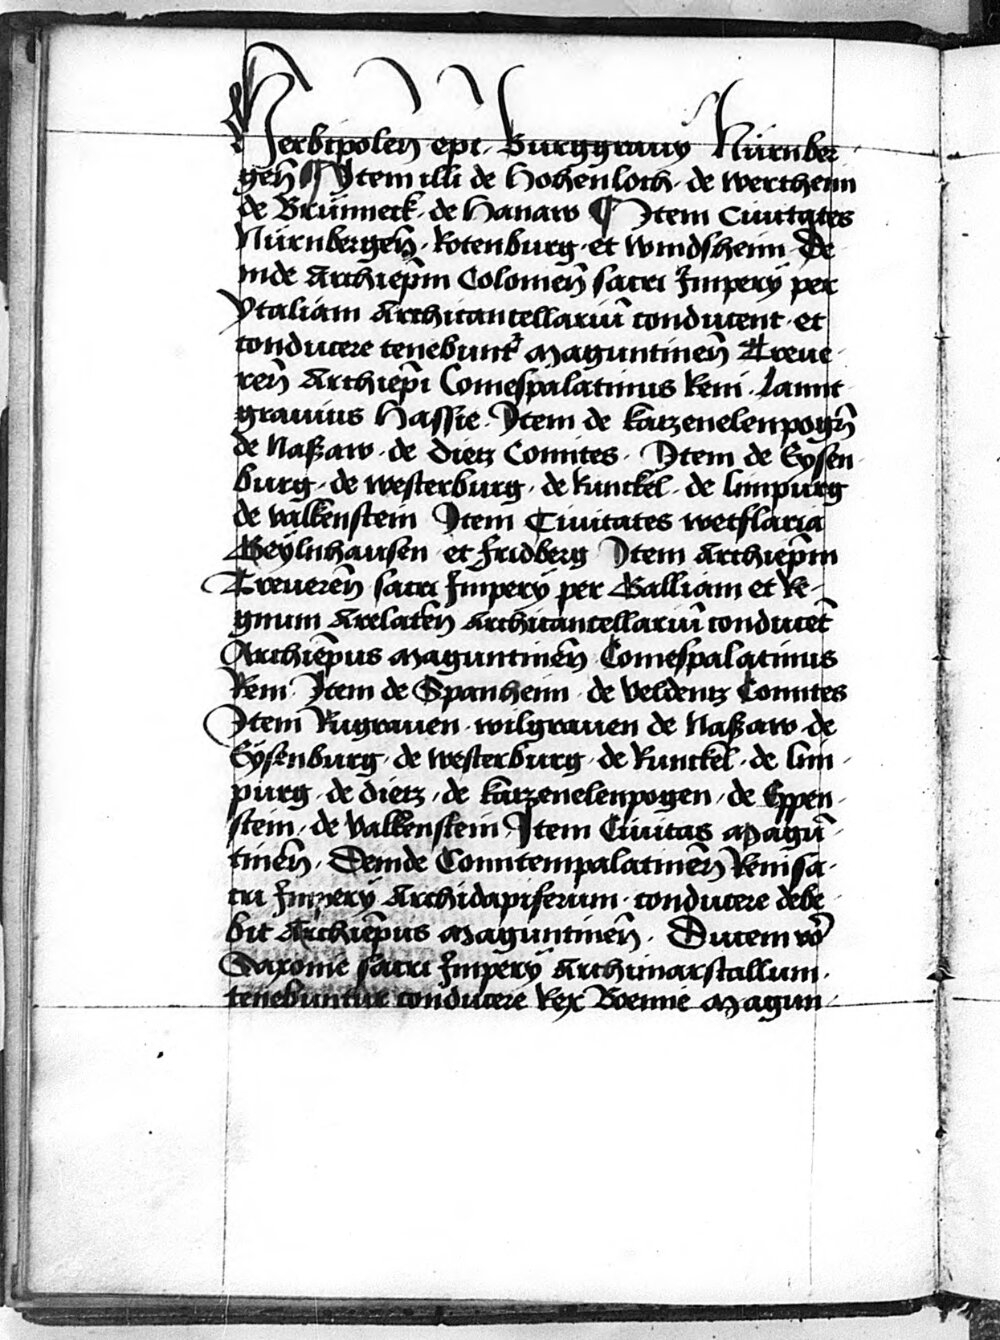 Herbipoleñ epi · Burggrauÿ Nürnber·
geñ ¶ Item illi de Hohenloch · de Wertheim
de Brunneck · de Hanaw ¶ Item Ciuitates
Nürnbergeñ · Rotenburg · et Windsheim · De
inde Archiepm̄ Coloineñ sacri Imperÿ per
Ytaliam Archicancellariū conducent · et
conducere tenebunt᷑ Maguntineñ Treue·
reñ Archiepī Comespalatinus Reni · Lannt
grauius Hassie · Item de Katzenelenpogñ
de Naßaw · de Dietz Comites · Item de Eysen
burg · de Westerburg · de Runckel · de Limpurg
de Valkenstein Item Ciuitates Wetflaria
Geÿlnhausen · et Fridberg Item Archiepm̄
Treuereñ sacri Imperÿ per Galliam et Re·
gnum Arelateñ Archicancellariū conducēt
Archiēpus Maguntineñ · Comespalatinus
Reni · Item de Spanheim · de Veldentz Comites
Item Rugrauen · Wilgrauen de Naßaw · de
Eÿsenburg · de Westerburg · de Runckel · de Lim·
purg · de Dietz · de Katzenelenpogen · de Eppen·
stein · de Valkenstein Item Ciuitas Magū·
tineñ · Deinde Comitempalatineñ Reni sa·
cri Imperÿ Archidapiferum · conducere debe·
bit Archiēpus Maguntineñ · Ducem vō
Saxonie sacri Imperÿ Archimarscallum ·
tenebuntur conducere Rex Boemie Magun·